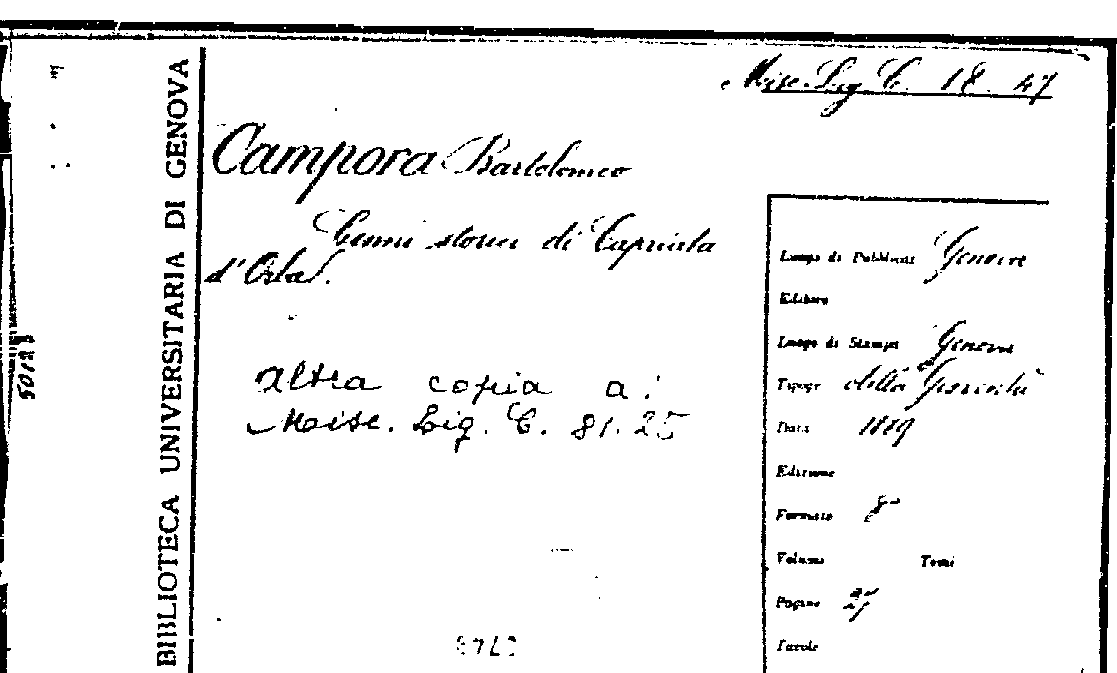 Misc. Lig. C. 18. 47
BIBLIOTECA UNIVERSITARIA DI GENOVA
Campora Bartolomeo
Cenni storici di Capriata
d'Orba.
altra copia a:
Misc. Lig. C. 81.25
Luogo di Pubblicaz Genova
Editore
Luogo di Stampa Genova
Tipogr della Gioventù
Data
Edizione
Formato 8°
Volume Tomi
Pagine
Tavole